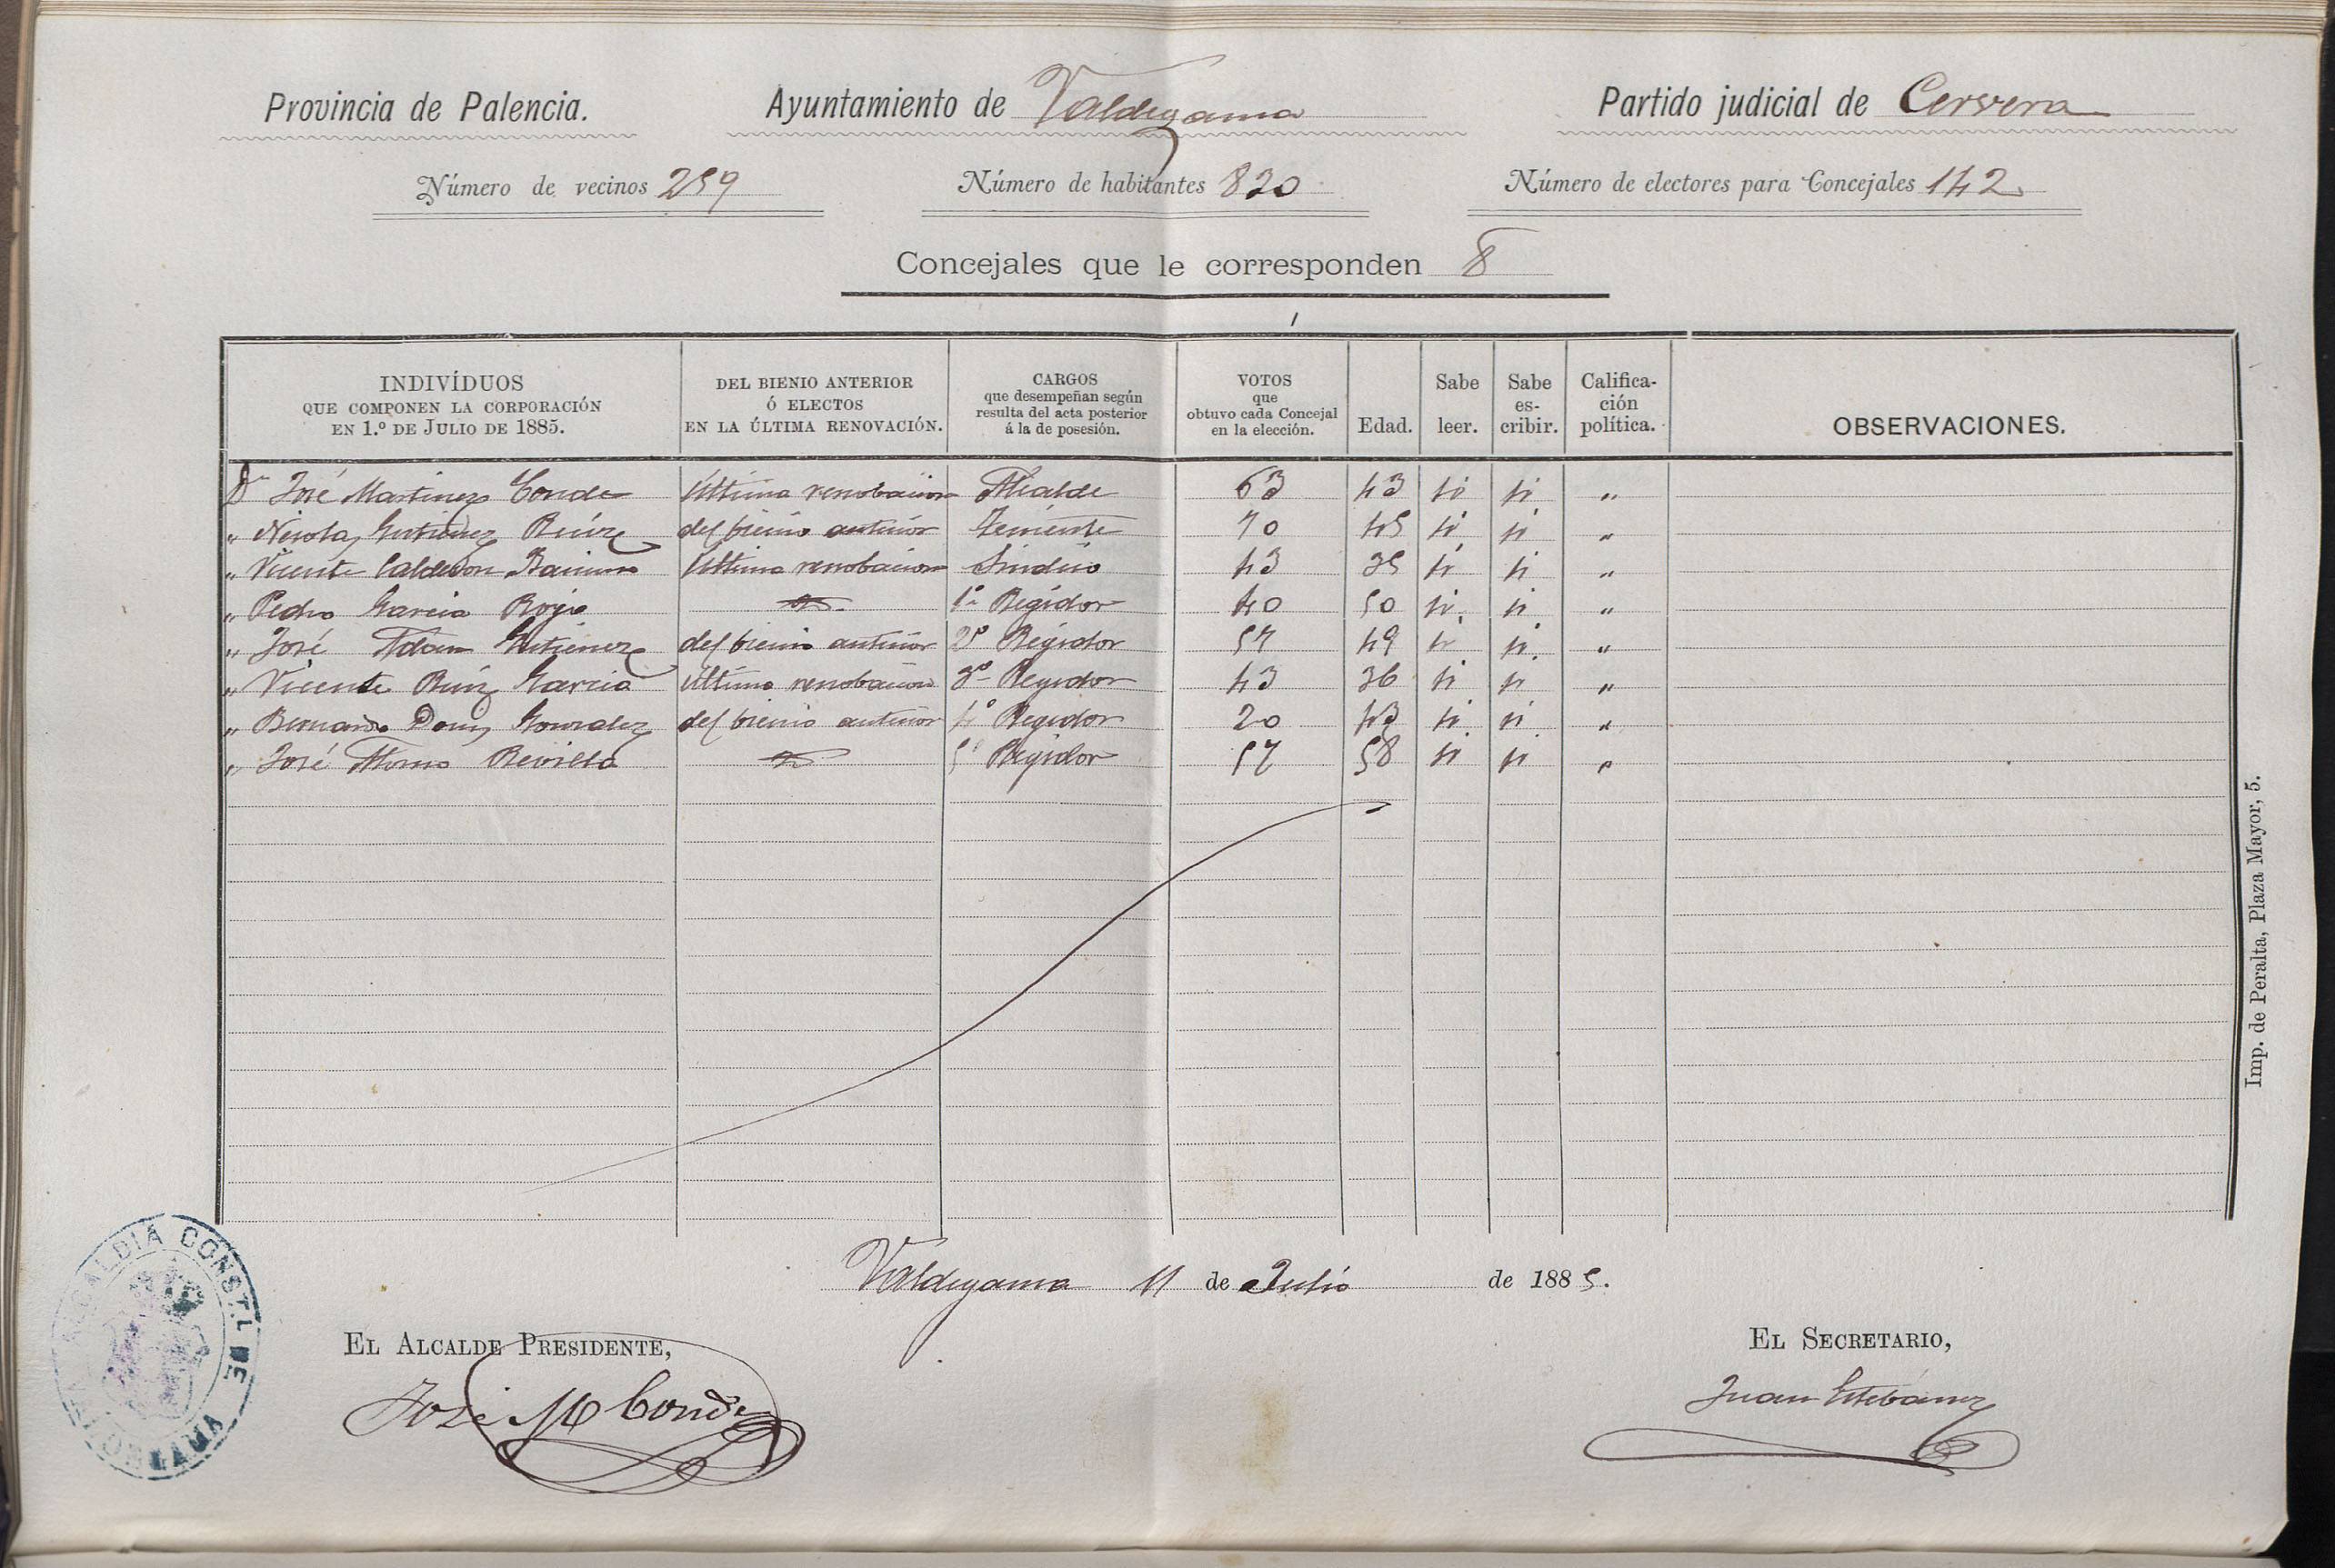 Provincia de Palencia. Ayuntamiento de Valdegama Partido judicial de Cervera
Número de vecinos 259 Número de habitantes 820 Número de electores para Concejales 142
Concejales que le corresponden 8
INDIVÍDUOS
QUE COMPONEN LA CORPORACIÓN
EN 1.º DE JULIO DE 1885.
DEL BIENIO ANTERIOR
Ó ELECTOS
EN LA ÚLTIMA RENOVACIÓN.
CARGOS
que desempeñan según
resulta del acta posterior
á la de posesión.
VOTOS
que
obtuvo cada Concejal
en la elección.
Edad.
Sabe
leer.
Sabe
es-
cribir.
Califica-
ción
política.
OBSERVACIONES.
Dn José Martinez Conde Ultima renobacion Alcalde 63 43 si si "
" Nicolas Gutierrez Ruiz del bienio anterior Teniente 70 45 si si "
" Vicente Calderon Ultima renobacion Sindico 43 35 si si "
" Pedro Garcia Rojo 1º Regidor 40 50 si si "
" José Adan Gutierrez del bienio anterior 2º Regidor 57 49 si si "
" Vicente Ruiz Garcia Ultima renobacion 3º Regidor 43 36 si si "
" Bernardo Gonzalez del bienio anterior 4º Regidor 20 43 si si "
" José Revilla 5º Regidor 57 58 si si "
Valdegama 11 de Julio de 1885.
EL ALCALDE PRESIDENTE,
José M Conde
EL SECRETARIO,
Juan Estebanez
ALCALDIA CONSTL DE
Imp. de Peralta, Plaza Mayor, 5.